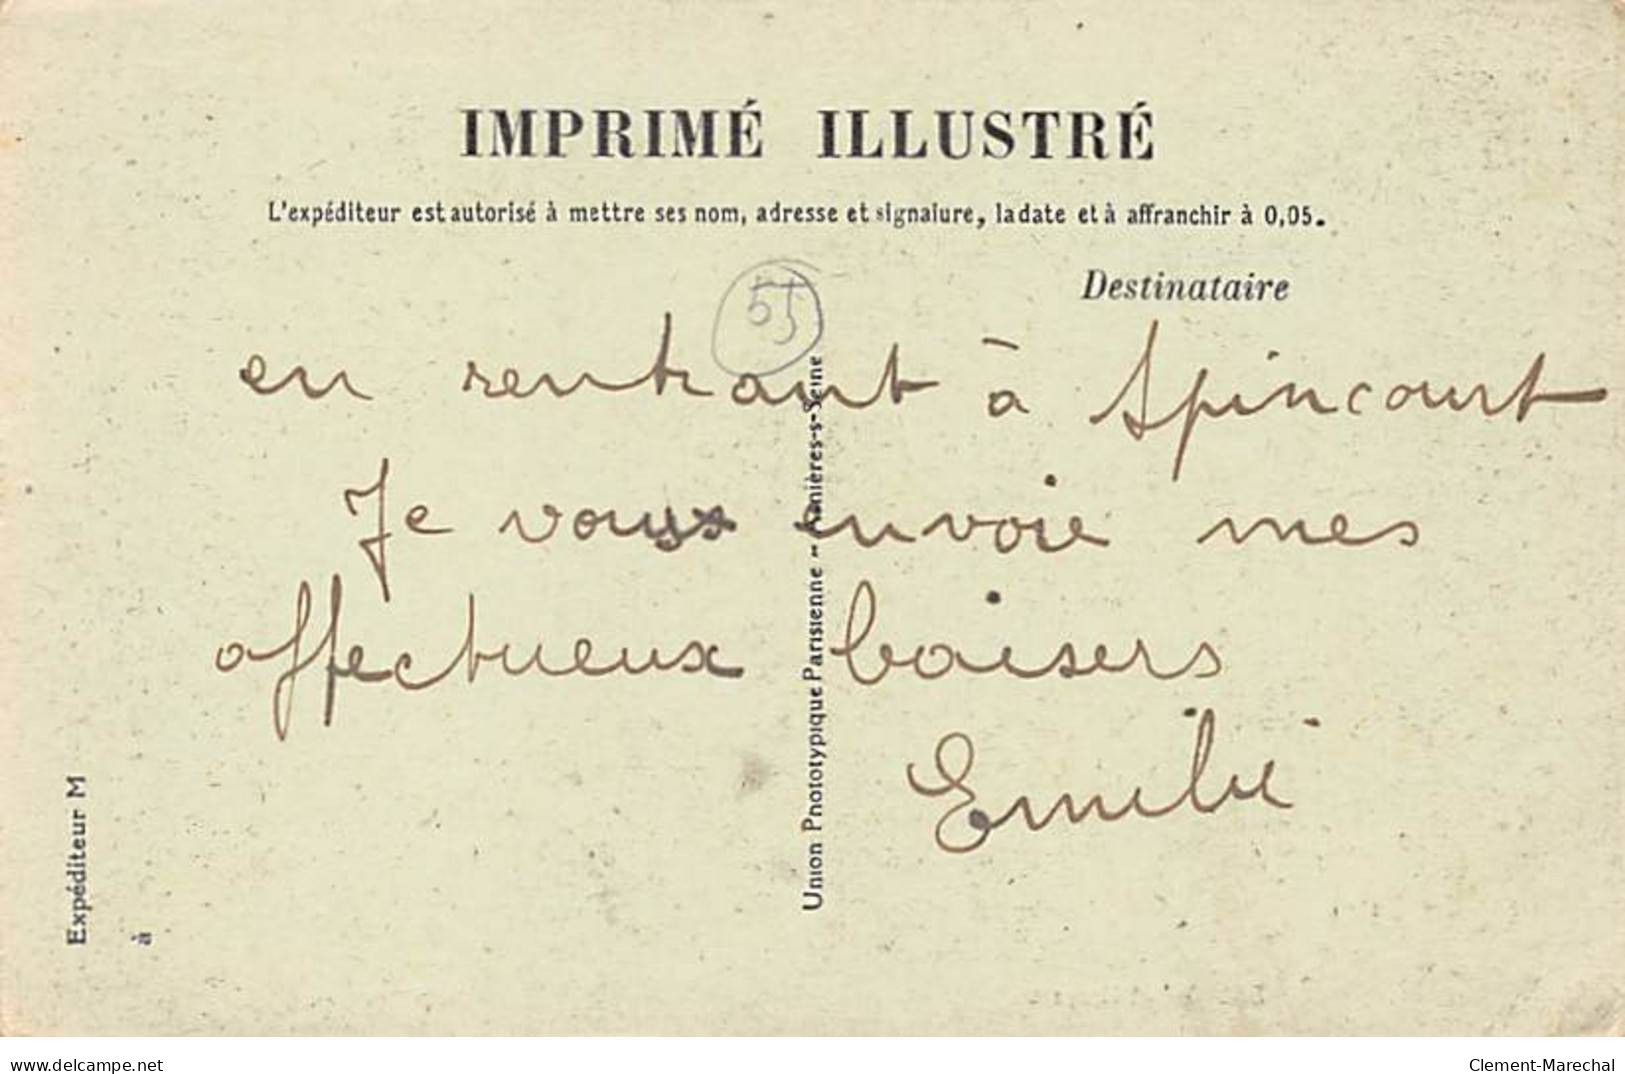 IMPRIMÉ ILLUSTRÉ
L'expéditeur est autorisé à mettre ses nom, adresse et signaiure, la date et à affranchir à 0,05.
55
Destinataire
en rentrant à Spincourt
Je vous envoie mes
affectueux baisers
Emilie
Union Phototypique Parisienne -- Asnières-s-Seine
Expéditeur M
à
www.delcampe.net
Clement-Marechal